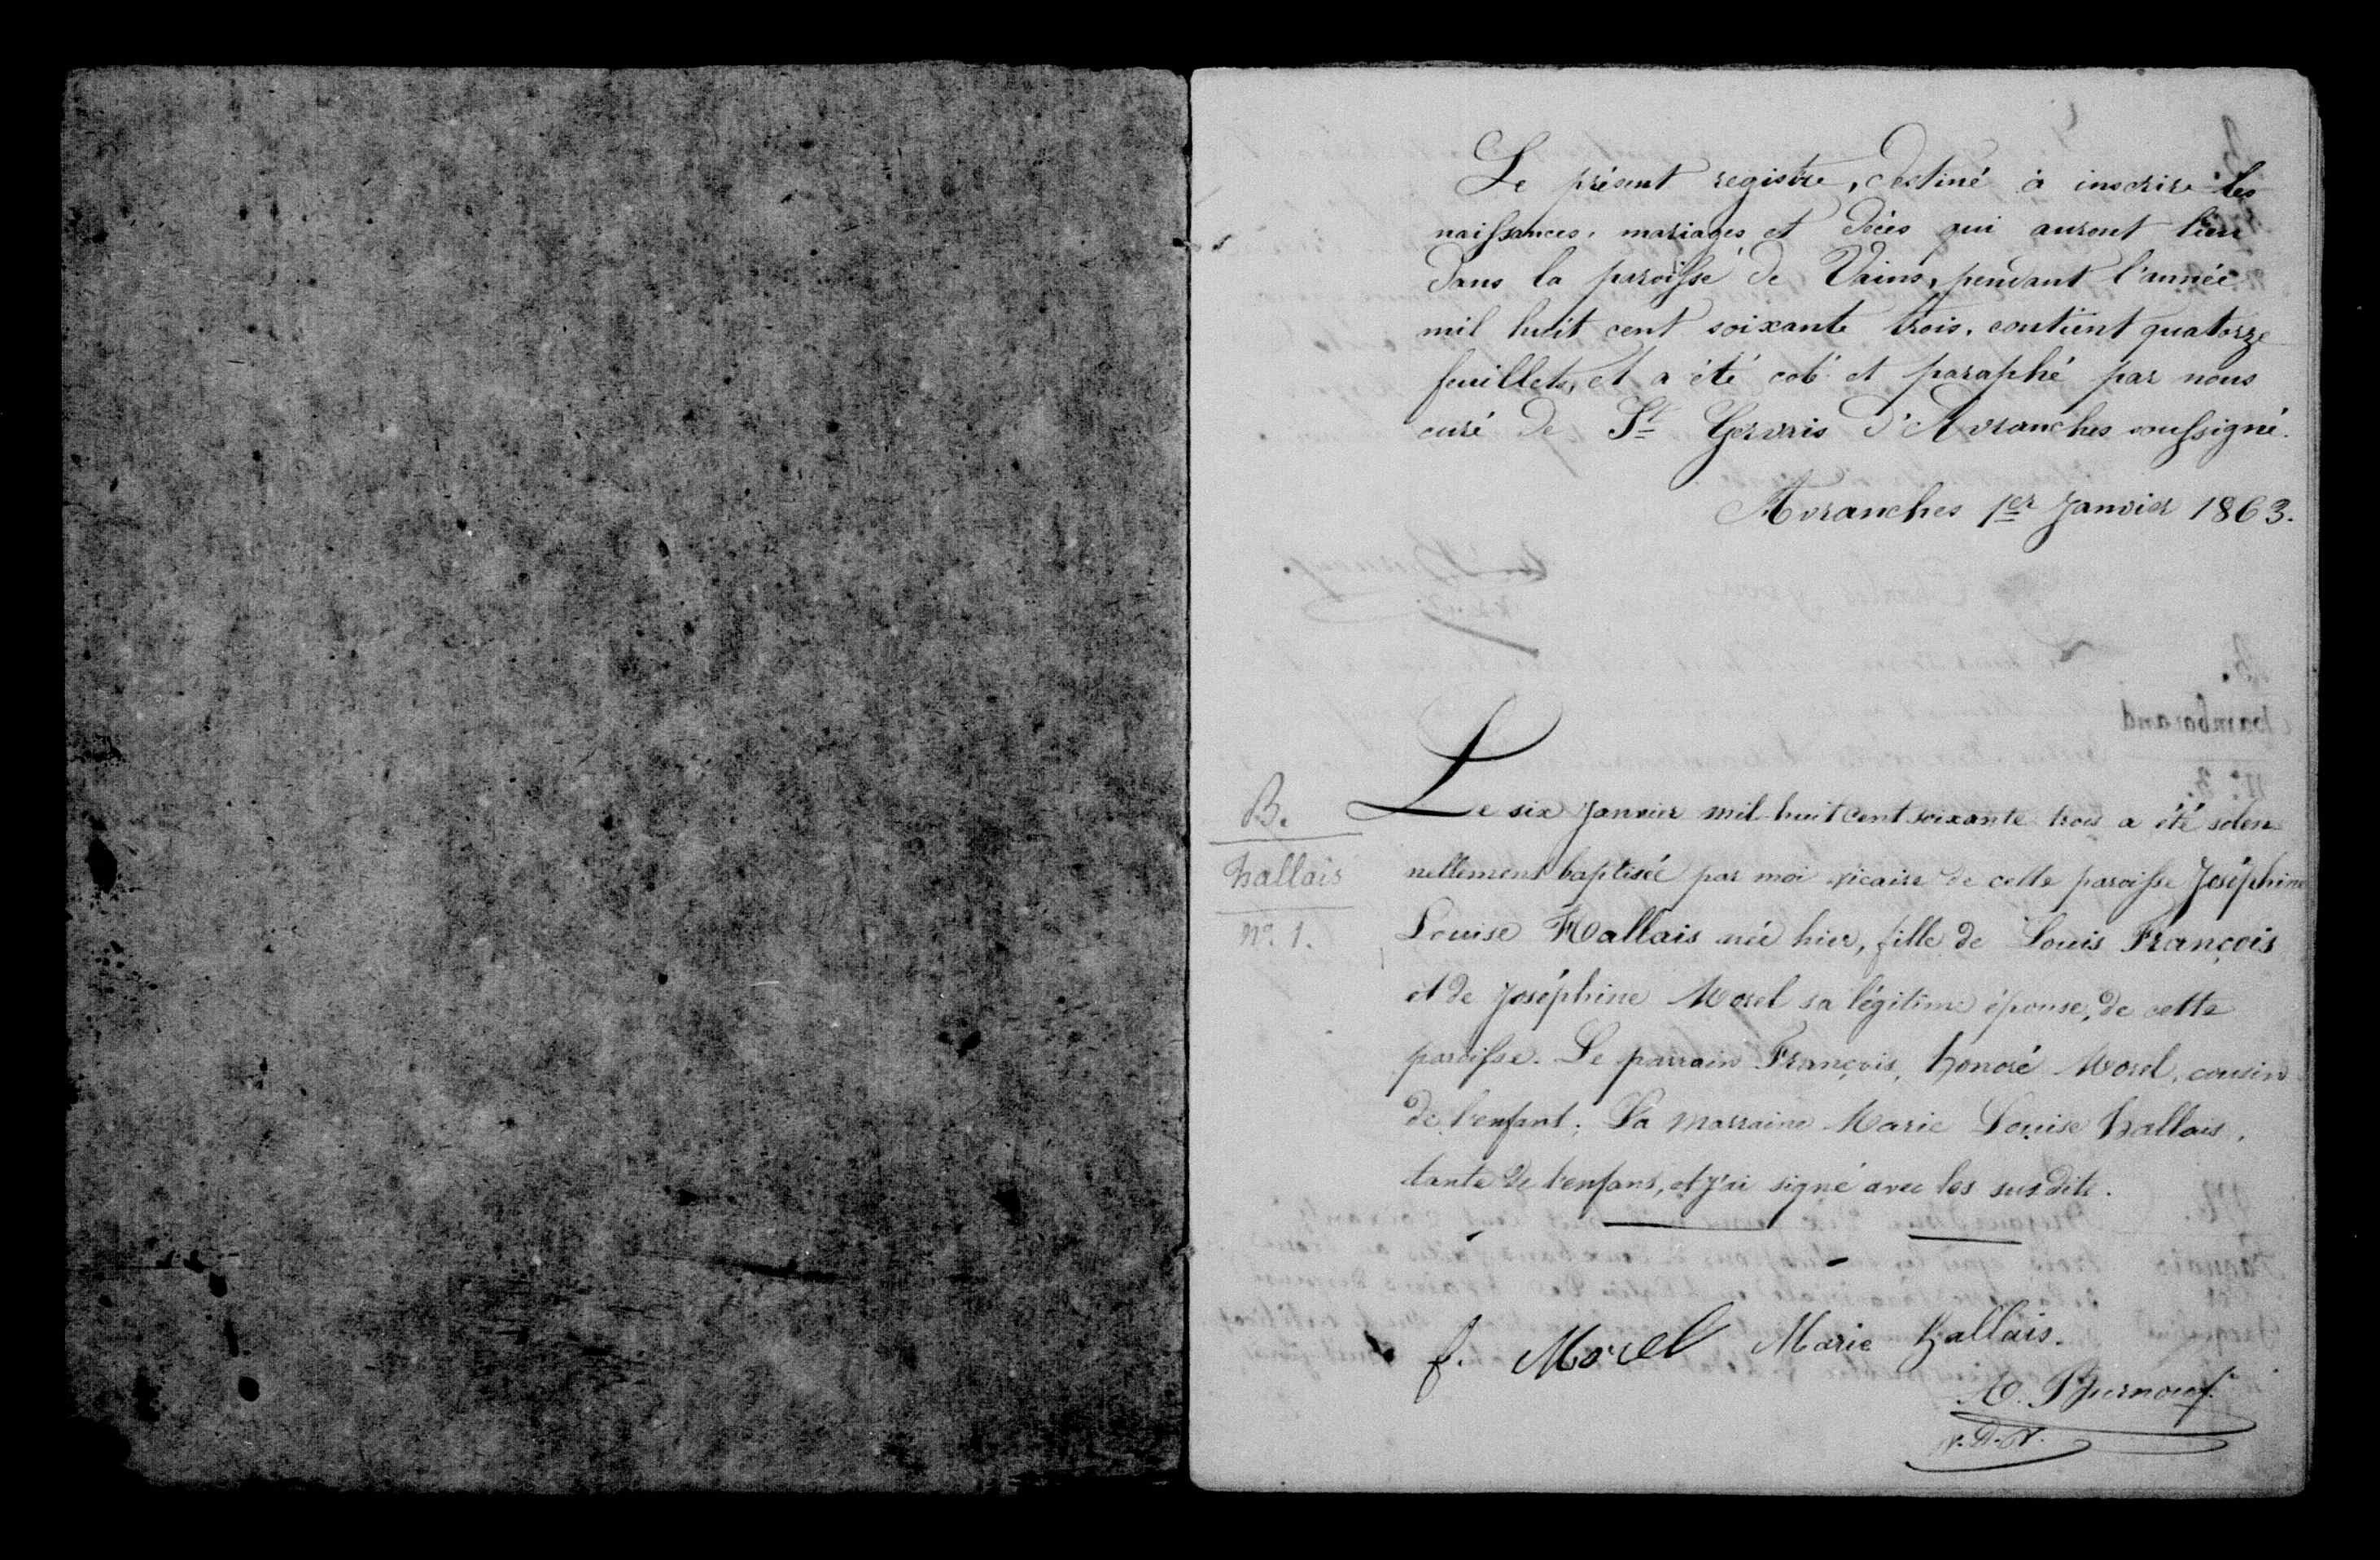 Le présent registre, destiné à inscrire les
naissances, mariages et décès qui auront lieu
dans la paroisse de Vains, pendant l'année
mil huit cent soixante trois, contient quatorze
feuillets, et a été coté et paraphé par nous
curé de St Gervais d'Avranches soussigné.
Avranches 1er Janvier 1863.
B.
hallais
no. 1.
Le six Janvier mil-huit cent soixante trois a été solen
nellement baptisée par moi vicaire de cette paroisse Joséphine
Louise Hallais née hier, fille de Louis François
et de Joséphine Morel sa légitime épouse, de cette
paroisse. Le parrain François, honoré Morel, cousin
de l'enfant; La marraine Marie Louise hallais,
tante de l'enfant, et j'ai signé avec les susdits.
f. Morel Marie hallais.
Burnouf